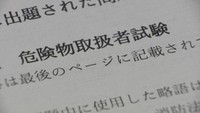 出題された問
危険物取扱者試験
は最後のページに記載されて
験中に使用した略語は
消防法